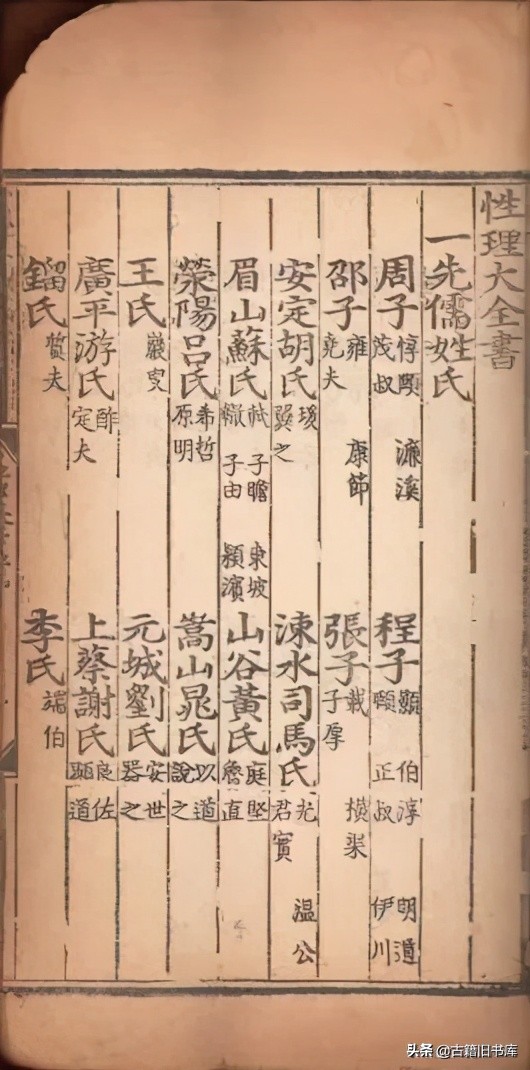 性理大全書
一先儒姓氏
周子 惇頤 茂叔 濂溪 程子 顥 伯淳 明道 頤 正叔 伊川
邵子 雍 堯夫 康節 張子 載 子厚 橫渠
安定胡氏 瑗 翼之 涑水司馬氏 光 君實 温公
眉山蘇氏 軾 子瞻 東坡 轍 子由 潁濱 山谷黃氏 庭堅 魯直
滎陽呂氏 希哲 原明 嵩山晁氏 以道 說之
王氏 巖叟 元城劉氏 安世 器之
廣平游氏 酢 定夫 上蔡謝氏 良佐 顯道
鎦氏 質夫 李氏 端伯
头条 @古籍旧书库